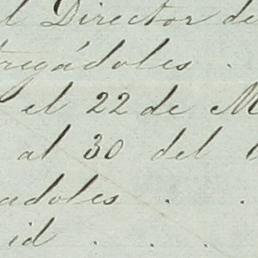 l Director de
tregádoles .
el 22 de M
al 30 del
adoles . .
id . . .